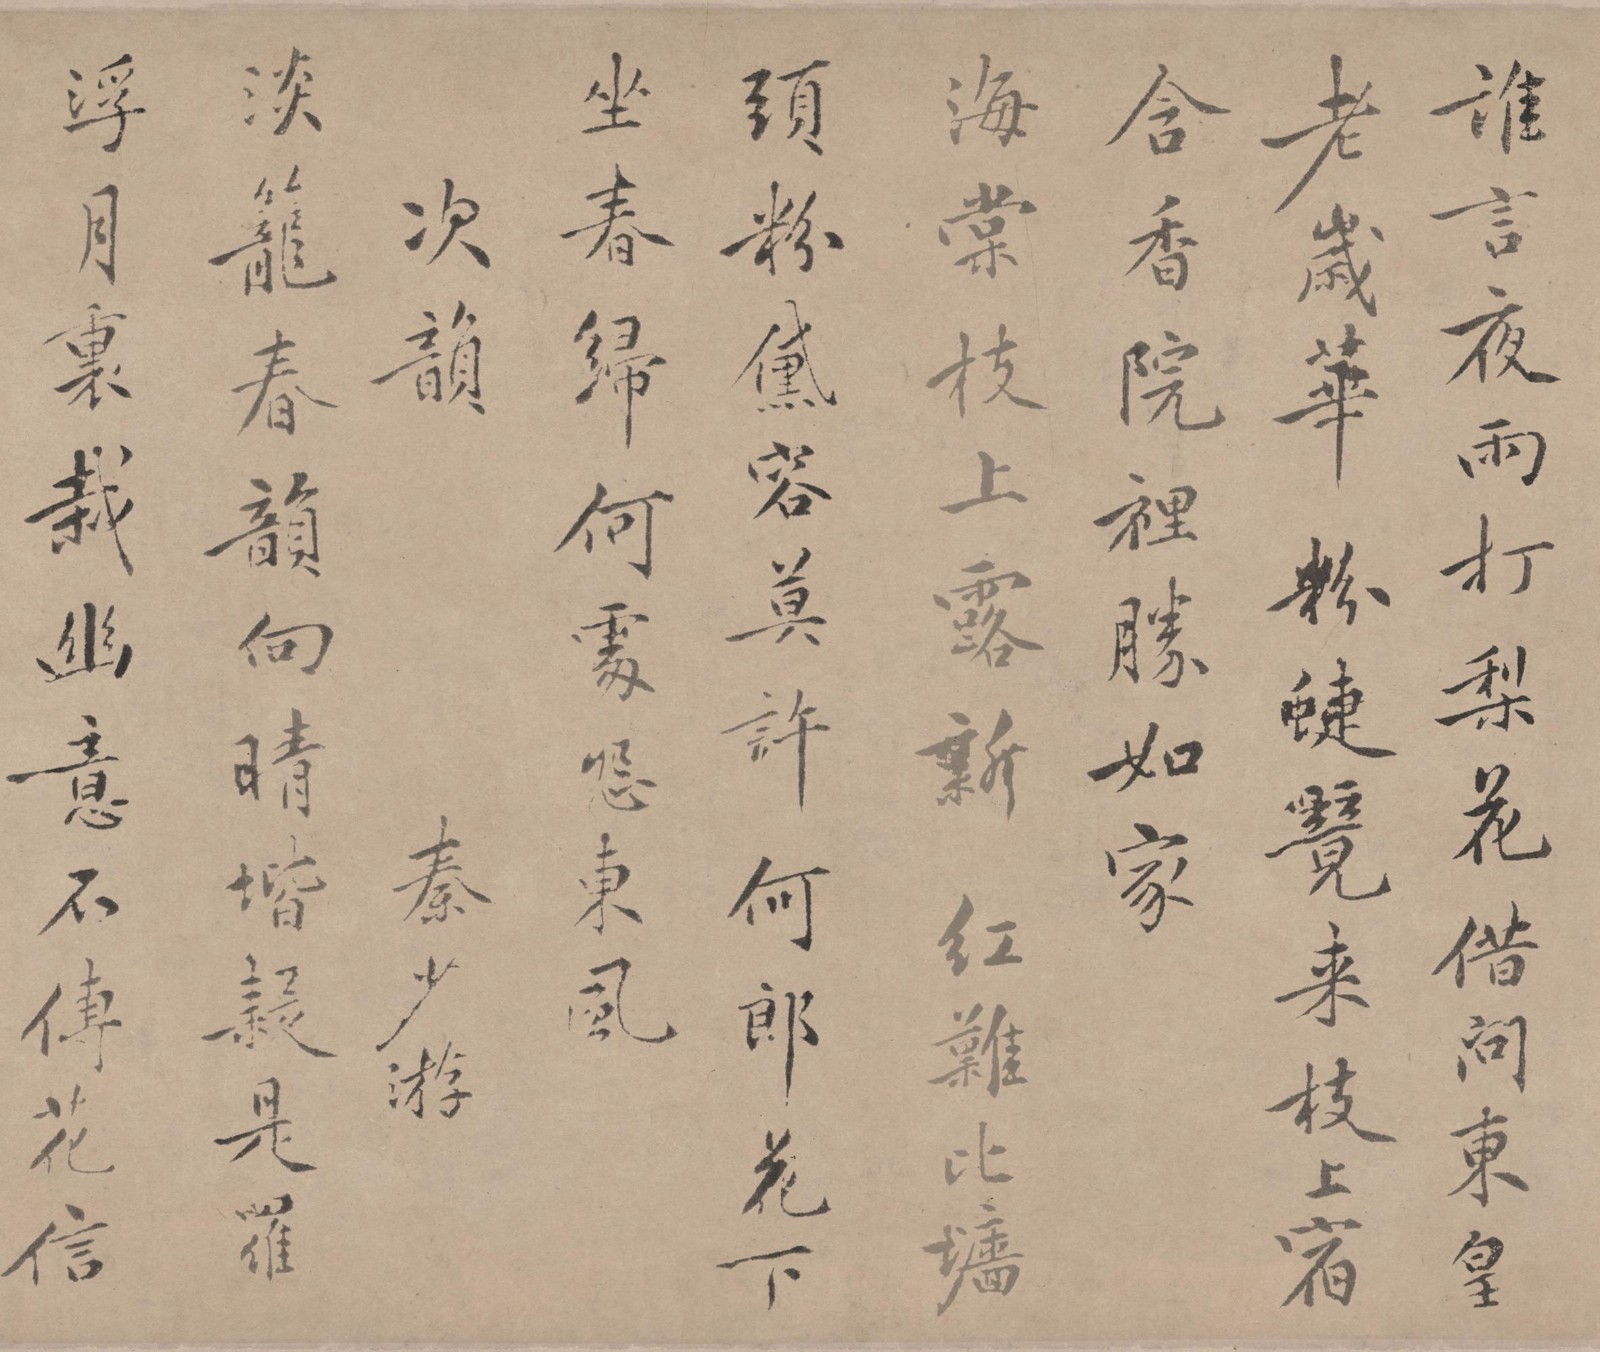 誰言夜雨打梨花借問東皇
老歲華粉蜨覽来枝上宿
含香院裡勝如家
海棠枝上露新紅難比墻
頭粉黛容莫許何郎花下
坐春歸何處怨東風
次韻 秦少游
淡籠春韻向晴堦疑是羅
浮月裏栽幽意不傳花信